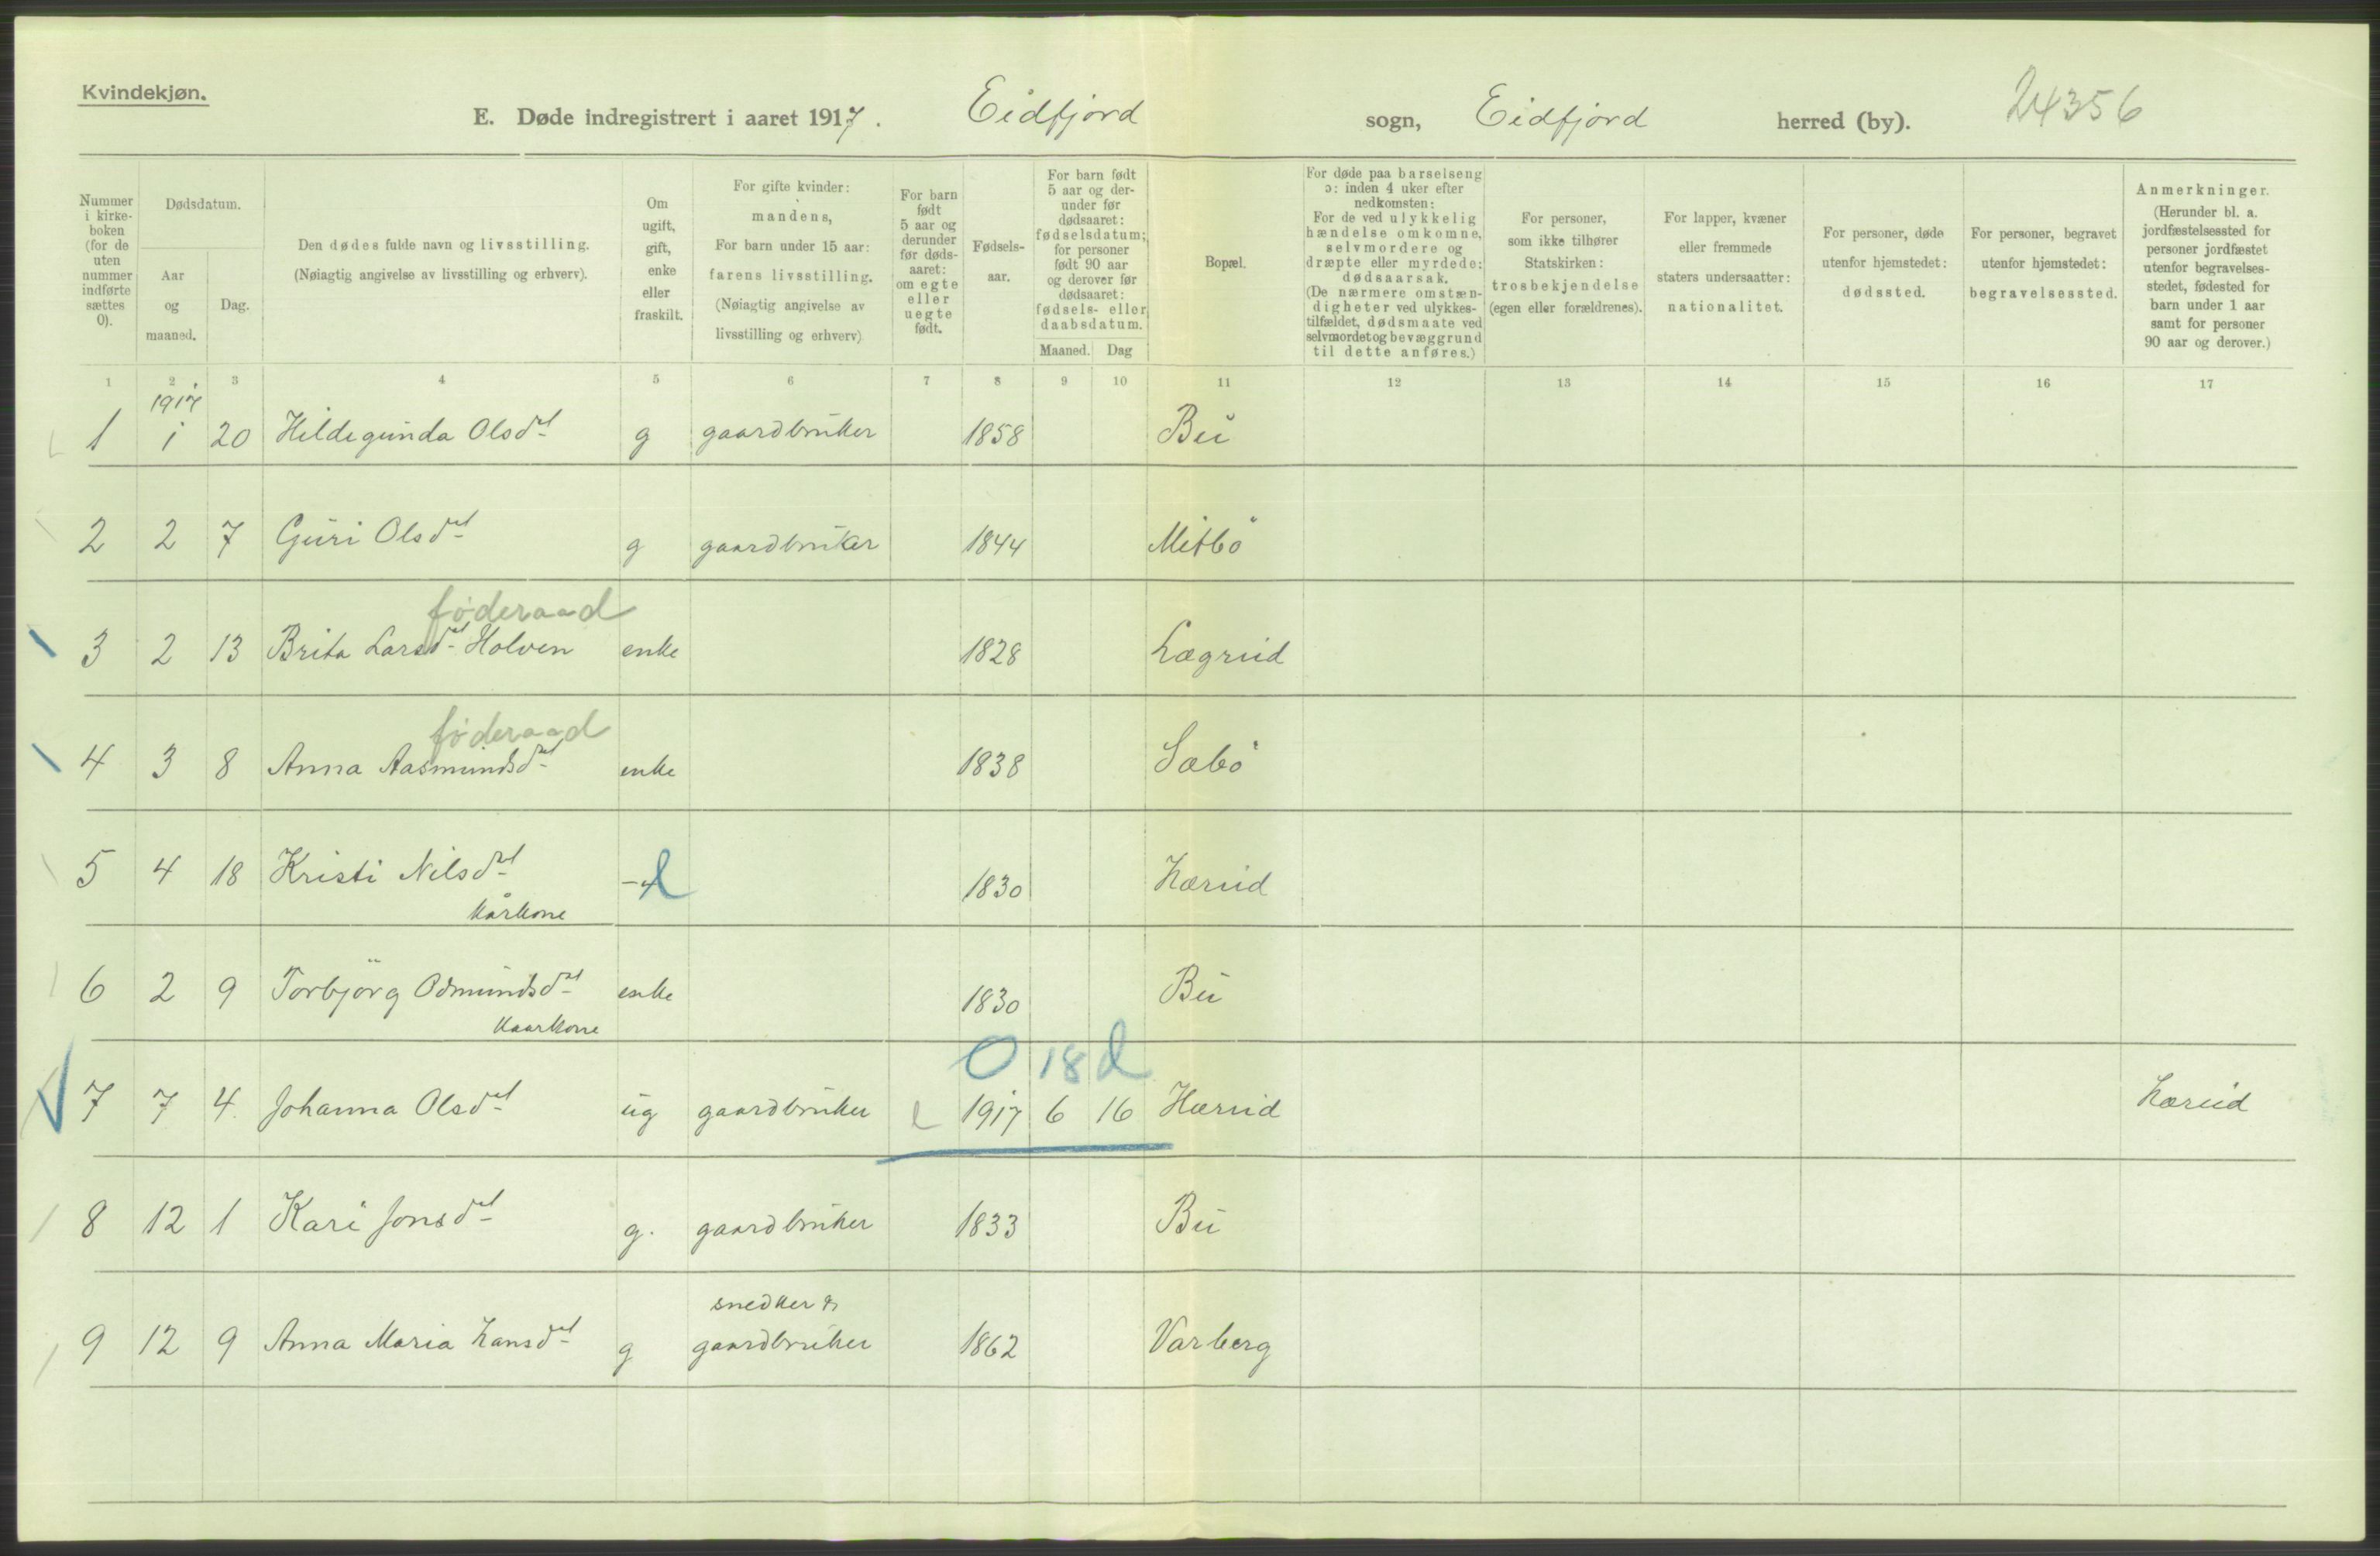 Kvindekjøn.
E. Døde indregistrert i aaret 1917. Eidfjord sogn, Eidfjord herred (by). 24356
Nummer i kirke-boken (for de uten nummer indførte sættes 0).
Dødsdatum.
Aar og maaned.
Dag.
Den dødes fulde navn og livsstilling.
(Nøiagtig angivelse av livsstilling og erhverv).
Om ugift, gift, enke eller fraskilt.
For gifte kvinder: mandens,
For barn under 15 aar: farens livsstilling.
(Nøiagtig angivelse av livsstilling og erhverv)
For barn født 5 aar og derunder før døds-aaret: om egte eller uegte født.
Fødsels-aar.
For barn født 5 aar og der-under før dødsaaret: fødselsdatum; for personer født 90 aar og derover før dødsaaret: fødsels- eller daabsdatum.
Maaned. Dag
Bopæl.
For døde paa barselseng ɔ: inden 4 uker efter nedkomsten:
For de ved ulykkelig hændelse omkomne, selvmordere og dræpte eller myrdede: dødsaarsak.
(De nærmere omstæn-digheter ved ulykkes-tilfældet, dødsmaate ved selvmordet og bevæggrund til dette anføres.)
For personer, som ikke tilhører Statskirken: trosbekjendelse (egen eller forældrenes).
For lapper, kvæner eller fremmede staters undersaatter: nationalitet.
For personer, døde utenfor hjemstedet: dødssted.
For personer, begravet utenfor hjemstedet: begravelsessted.
Anmerkninger.
(Herunder bl. a. jordfæstelsessted for personer jordfæstet utenfor begravelses-stedet, fødested for barn under 1 aar samt for personer 90 aar og derover.)
1 2 3 4 5 6 7 8 9 10 11 12 13 14 15 16 17
1917
1 1 20 Hildegunda Olsdt g gaardbruker 1858 Bu
2 2 7 Guri Olsdt g gaardbruker 1844 Mitbö
føderaad
3 2 13 Brita Larsdt Holven enke 1828 Lægrud
føderaad
4 3 8 Anna Aasmundsdt enke 1838 Sæbö
5 4 18 Kristi Nilsdt 1830 Hærud
kårkone
6 2 9 Torbjörg Odmundsdt enke 1830 Bu
Kaarkone
0 18 d
7 7 4. Johanna Olsdt ug gaardbruker e 1917 6 16 Hærud Hærud
8 12 1 Kari Jonsdt g. gaardbruker 1833 Bu
snedker og
9 12 9 Anna Maria Hansdt g gaardbruker 1862 Varberg